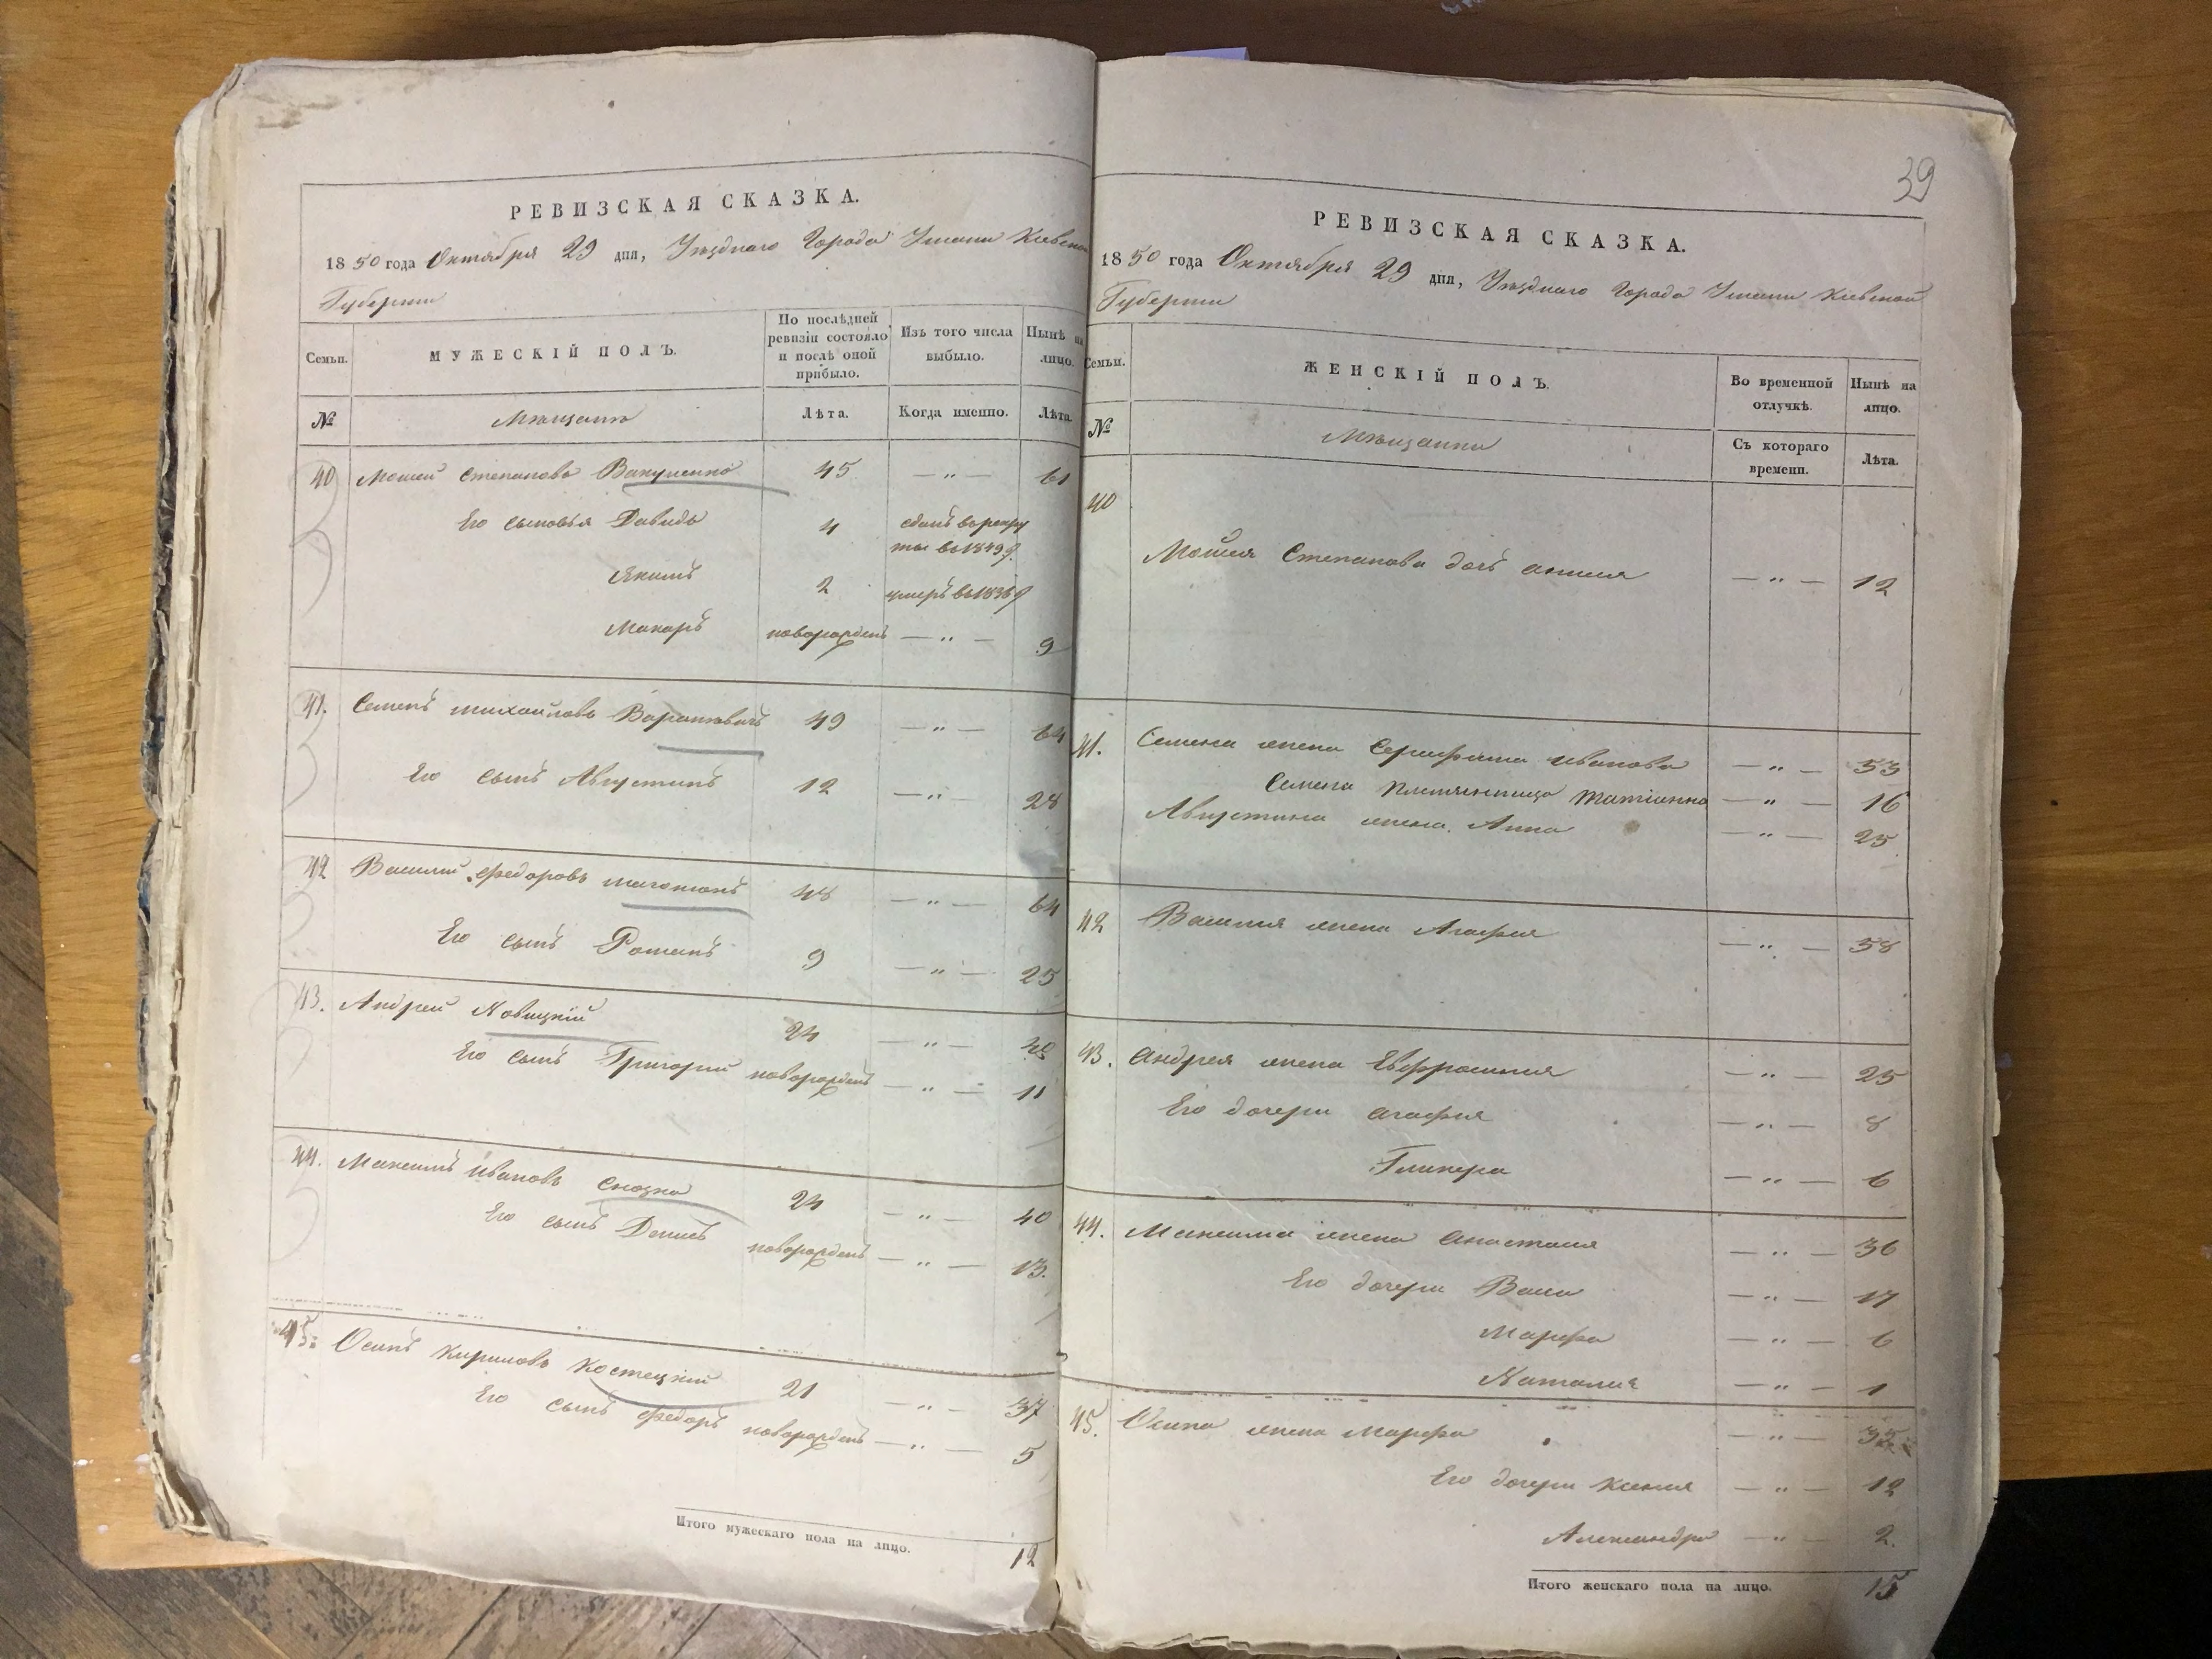 РЕВИЗСКАЯ СКАЗКА.
1850 года Октября 29 дня, Уѣзднаго Города Умани Кіевской
Губерніи
Семьи. МУЖЕСКІЙ ПОЛЪ. По послѣдней ревизіи состояло и послѣ оной прибыло. Изъ того числа выбыло. Нынѣ на лицо.
№ Мѣщанъ Лѣта. Когда именно. Лѣта.
40 Мойсей Степановъ Вакуленко 45 — „ — 61
Его сыновья Давидъ 4 сданъ въ рекру
ты въ 1849 г.
Якимъ 2 умеръ въ 1836 г
Макаръ новорожденъ — „ — 9
41. Семенъ Михайловъ 49 — „ — 64
Его сынъ Августинъ 12 — „ — 28
42 Василий Федоровъ 48 — „ — 64
Его сынъ Романъ 9 — „ — 25
43. Андрей Новицкій 24 — „ —
Его сынъ Григорий новорожденъ — „ — 11
44. Максимъ Ивановъ 24 — „ — 40
Его сынъ Денисъ новорожденъ — „ — 13.
45. Осипъ Кириловъ Костецкій 21 — „ — 37
Его сынъ Федоръ новорожденъ — „ — 5
Итого мужескаго пола на лицо. 12
39
РЕВИЗСКАЯ СКАЗКА.
1850 года Октября 29 дня, Уѣзднаго Города Умани Кіевской
Губерніи
Семьи. ЖЕНСКІЙ ПОЛЪ. Во временной отлучкѣ. Нынѣ на лицо.
№ Мѣщанки Съ котораго времени. Лѣта.
40
Мойсея Степанова дочь — „ — 12
41. Семена жена Серафима Иванова — „ — 53
Семена племянница Татіанна — „ — 16
Августина жена Анна — „ — 25
42 Василия жена Агафия — „ — 58
43. Андрея жена Евфросиния — „ — 25
Его дочери Агафия — „ — 8
Гликера — „ — 6
44. Максима жена Анастасия — „ — 36
Его дочери Васса — „ — 17
Марфа — „ — 6
Наталия — „ — 1
45. Осипа жена Марфа — „ — 35
Его дочери Ксения — „ — 12
Александра — „ — 2.
Итого женскаго пола на лицо. 15